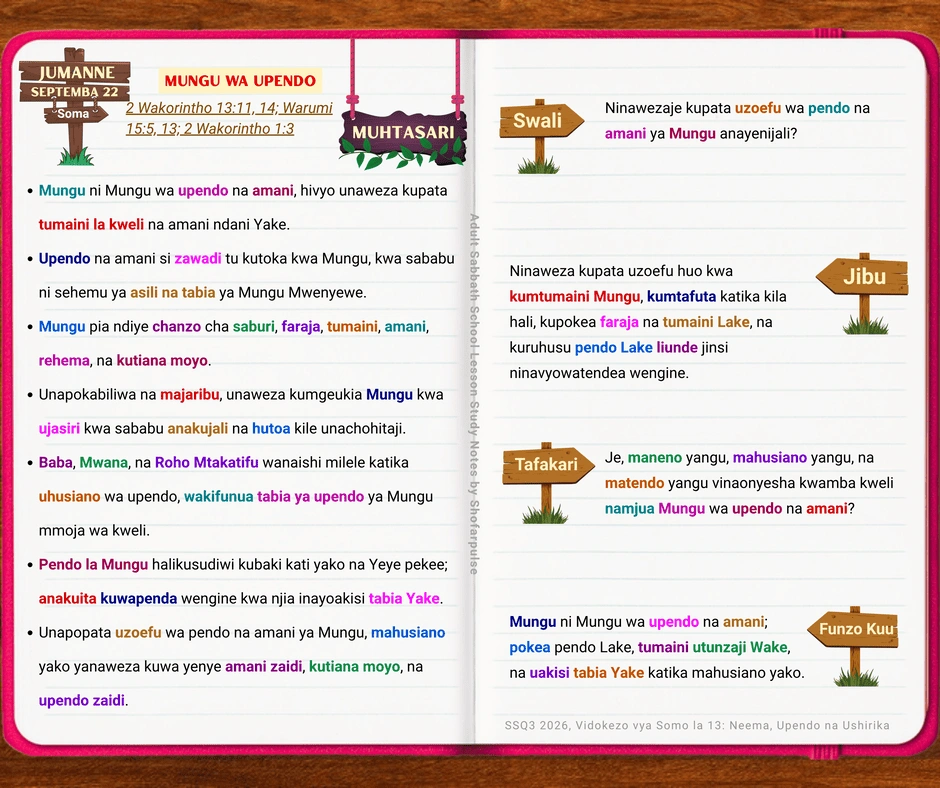 JUMANNE
SEPTEMBA 22
Soma
MUNGU WA UPENDO
2 Wakorintho 13:11, 14; Warumi
15:5, 13; 2 Wakorintho 1:3
MUHTASARI
• Mungu ni Mungu wa upendo na amani, hivyo unaweza kupata
tumaini la kweli na amani ndani Yake.
• Upendo na amani si zawadi tu kutoka kwa Mungu, kwa sababu
ni sehemu ya asili na tabia ya Mungu Mwenyewe.
• Mungu pia ndiye chanzo cha saburi, faraja, tumaini, amani,
rehema, na kutiana moyo.
• Unapokabiliwa na majaribu, unaweza kumgeukia Mungu kwa
ujasiri kwa sababu anakujali na hutoa kile unachohitaji.
• Baba, Mwana, na Roho Mtakatifu wanaishi milele katika
uhusiano wa upendo, wakifunua tabia ya upendo ya Mungu
mmoja wa kweli.
• Pendo la Mungu halikusudiwi kubaki kati yako na Yeye pekee;
anakuita kuwapenda wengine kwa njia inayoakisi tabia Yake.
• Unapopata uzoefu wa pendo na amani ya Mungu, mahusiano
yako yanaweza kuwa yenye amani zaidi, kutiana moyo, na
upendo zaidi.
Adult Sabbath School Lesson Study Notes by Shofarpulse
Swali
Ninawezaje kupata uzoefu wa pendo na
amani ya Mungu anayenijali?
Jibu
Ninaweza kupata uzoefu huo kwa
kumtumaini Mungu, kumtafuta katika kila
hali, kupokea faraja na tumaini Lake, na
kuruhusu pendo Lake liunde jinsi
ninavyowatendea wengine.
Tafakari
Je, maneno yangu, mahusiano yangu, na
matendo yangu vinaonyesha kwamba kweli
namjua Mungu wa upendo na amani?
Funzo Kuu
Mungu ni Mungu wa upendo na amani;
pokea pendo Lake, tumaini utunzaji Wake,
na uakisi tabia Yake katika mahusiano yako.
SSQ3 2026, Vidokezo vya Somo la 13: Neema, Upendo na Ushirika